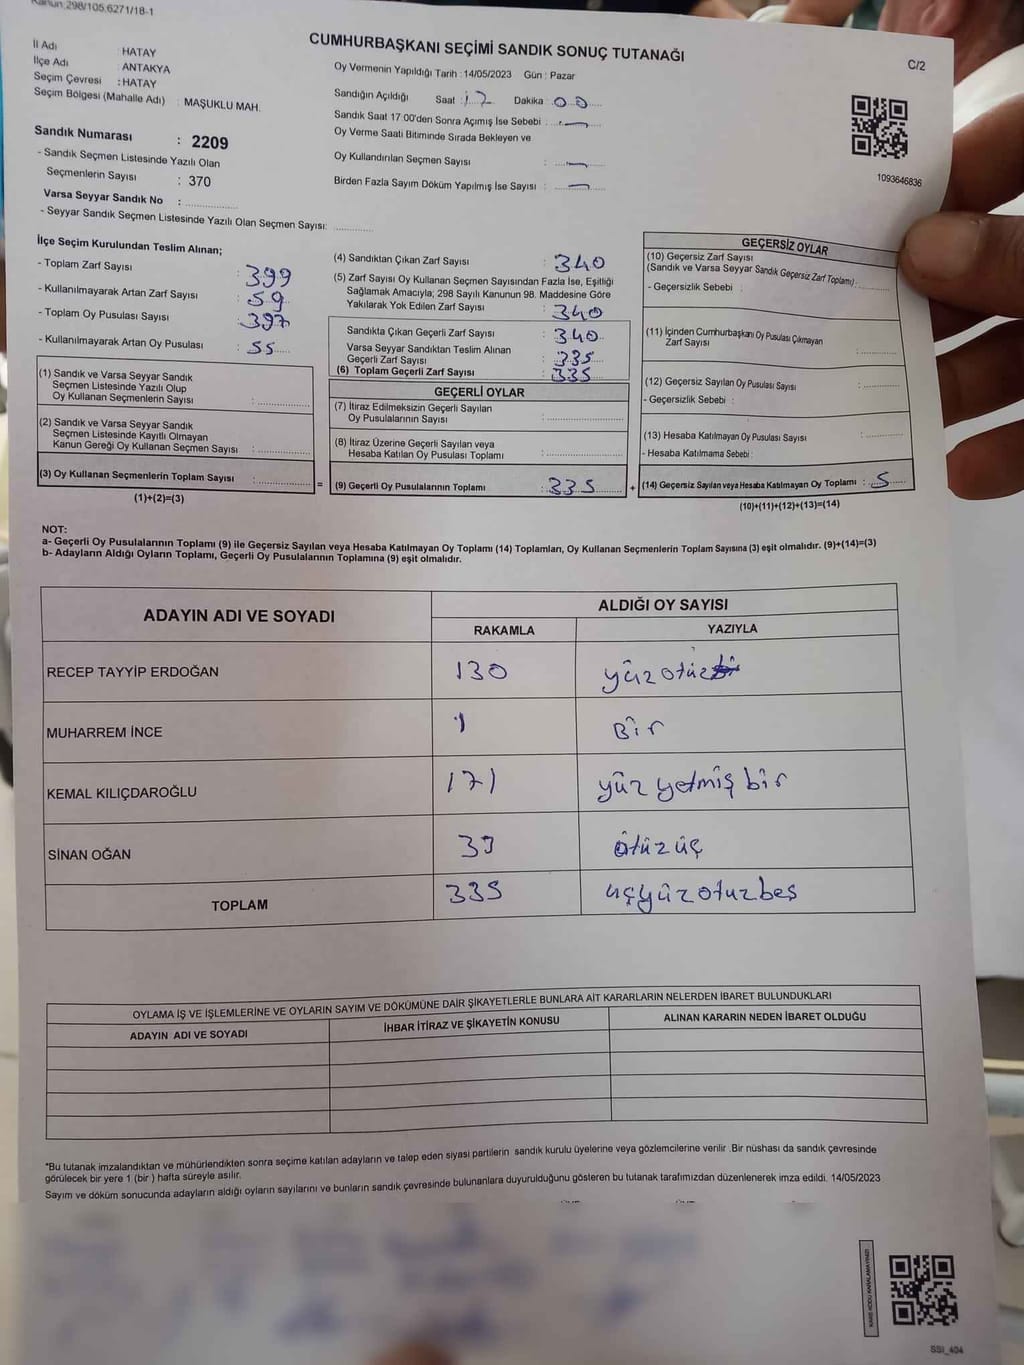 Kanun:298/105,6271/18-1
CUMHURBAŞKANI SEÇİMİ SANDIK SONUÇ TUTANAĞI
C/2
İl Adı : HATAY
İlçe Adı : ANTAKYA
Seçim Çevresi : HATAY
Seçim Bölgesi (Mahalle Adı) : MAŞUKLU MAH.
Oy Vermenin Yapıldığı Tarih : 14/05/2023 Gün : Pazar
Sandığın Açıldığı Saat : 17 Dakika : 00
Sandık Saat 17:00'den Sonra Açımış İse Sebebi : —
Oy Verme Saati Bitiminde Sırada Bekleyen ve
Oy Kullandırılan Seçmen Sayısı : —
Birden Fazla Sayım Döküm Yapılmış İse Sayısı : —
1093646836
Sandık Numarası : 2209
- Sandık Seçmen Listesinde Yazılı Olan
Seçmenlerin Sayısı : 370
Varsa Seyyar Sandık No :
- Seyyar Sandık Seçmen Listesinde Yazılı Olan Seçmen Sayısı:
İlçe Seçim Kurulundan Teslim Alınan;
- Toplam Zarf Sayısı : 399
- Kullanılmayarak Artan Zarf Sayısı : 59
- Toplam Oy Pusulası Sayısı : 397
- Kullanılmayarak Artan Oy Pusulası : 55
(1) Sandık ve Varsa Seyyar Sandık
Seçmen Listesinde Yazılı Olup
Oy Kullanan Seçmenlerin Sayısı :
(2) Sandık ve Varsa Seyyar Sandık
Seçmen Listesinde Kayıtlı Olmayan
Kanun Gereği Oy Kullanan Seçmen Sayısı :
(3) Oy Kullanan Seçmenlerin Toplam Sayısı : =
(1)+(2)=(3)
(4) Sandıktan Çıkan Zarf Sayısı : 340
(5) Zarf Sayısı Oy Kullanan Seçmen Sayısından Fazla İse, Eşitliği
Sağlamak Amacıyla; 298 Sayılı Kanunun 98. Maddesine Göre
Yakılarak Yok Edilen Zarf Sayısı : 340
Sandıkta Çıkan Geçerli Zarf Sayısı : 340
Varsa Seyyar Sandıktan Teslim Alınan
Geçerli Zarf Sayısı : 335
(6) Toplam Geçerli Zarf Sayısı : 335
GEÇERLİ OYLAR
(7) İtiraz Edilmeksizin Geçerli Sayılan
Oy Pusulalarının Sayısı :
(8) İtiraz Üzerine Geçerli Sayılan veya
Hesaba Katılan Oy Pusulası Toplamı :
(9) Geçerli Oy Pusulalarının Toplamı : 335 +
GEÇERSİZ OYLAR
(10) Geçersiz Zarf Sayısı
(Sandık ve Varsa Seyyar Sandık Geçersiz Zarf Toplamı) :
- Geçersizlik Sebebi :
(11) İçinden Cumhurbaşkanı Oy Pusulası Çıkmayan
Zarf Sayısı :
(12) Geçersiz Sayılan Oy Pusulası Sayısı :
- Geçersizlik Sebebi :
(13) Hesaba Katılmayan Oy Pusulası Sayısı :
- Hesaba Katılmama Sebebi :
(14) Geçersiz Sayılan veya Hesaba Katılmayan Oy Toplamı : 5
(10)+(11)+(12)+(13)=(14)
NOT:
a- Geçerli Oy Pusulalarının Toplamı (9) ile Geçersiz Sayılan veya Hesaba Katılmayan Oy Toplamı (14) Toplamları, Oy Kullanan Seçmenlerin Toplam Sayısına (3) eşit olmalıdır. (9)+(14)=(3)
b- Adayların Aldığı Oyların Toplamı, Geçerli Oy Pusulalarının Toplamına (9) eşit olmalıdır.
ADAYIN ADI VE SOYADI
ALDIĞI OY SAYISI
RAKAMLA YAZIYLA
RECEP TAYYİP ERDOĞAN 130 yüz otuz
MUHARREM İNCE 1 Bir
KEMAL KILIÇDAROĞLU 171 yüz yetmiş bir
SİNAN OĞAN 33 otuz üç
TOPLAM 335 üçyüz otuz beş
OYLAMA İŞ VE İŞLEMLERİNE VE OYLARIN SAYIM VE DÖKÜMÜNE DAİR ŞİKAYETLERLE BUNLARA AİT KARARLARIN NELERDEN İBARET BULUNDUKLARI
ADAYIN ADI VE SOYADI İHBAR İTİRAZ VE ŞİKAYETİN KONUSU ALINAN KARARIN NEDEN İBARET OLDUĞU
*Bu tutanak imzalandıktan ve mühürlendikten sonra seçime katılan adayların ve talep eden siyasi partilerin sandık kurulu üyelerine veya gözlemcilerine verilir .Bir nüshası da sandık çevresinde
görülecek bir yere 1 (bir ) hafta süreyle asılır.
Sayım ve döküm sonucunda adayların aldığı oyların sayılarını ve bunların sandık çevresinde bulunanlara duyurulduğunu gösteren bu tutanak tarafımızdan düzenlenerek imza edildi. 14/05/2023
KARE KODU KARALAMAYINIZ!
SSI_404